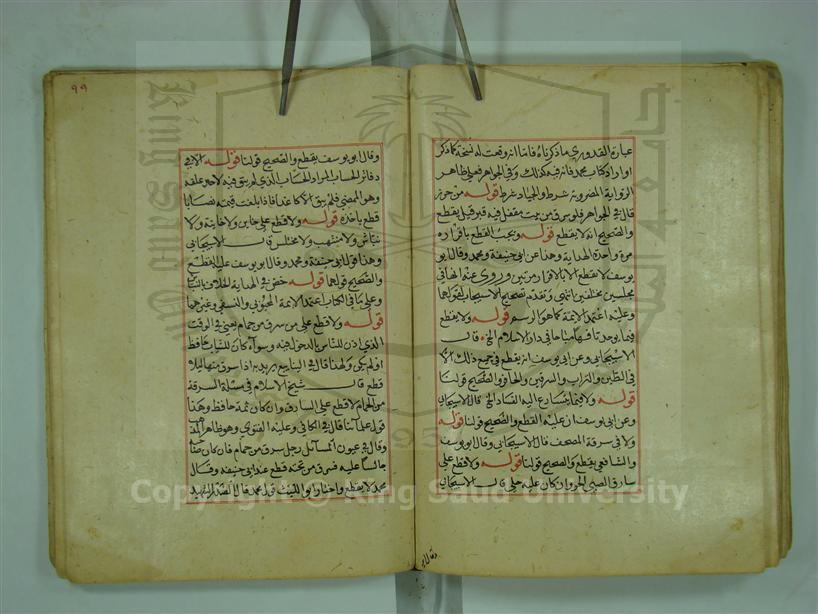 عبارة القدوري ما ذكرناه فاما انه وقعت له نسخة كما ذكر
او اراد كتاب محمد فانه فيه كذلك وفي الجواهر فعلي ظاهر
الرواية المضروبة شرط والجياد شرط قوله من حرز
قال في الجواهر فلو سرق من بيت مقفل فيه قبر قيل يقطع
والصحيح انه لا يقطع قوله ويجب القطع باقراره
مرة واحدة الهداية وهذا عن ابو حنيفة ومحمد وقال ابو
يوسف لا يقطع الا بالاقرار مرتين وروى عنه انها في
مجلسين مختلفين انتهى وتقدم تصحيح الاسبيجابي لقولهما
وعليه اعتمد الائمة كما هو الرسم قوله ولا يقطع
فيما يوجد تافها مباحا في دار الاسلام الخ قال
الاسبيجابي وعن ابي يوسف انه يقطع في جميع ذلك الا
في الطين والتراب والسرقين والصحيح قولنا
قوله ولا فيما يتسارع اليه الفساد الخ قال الاسبيجابي
وعن ابي يوسف ان عليه القطع والصحيح قولنا قوله
ولا في سرقة المصحف قال الاسبيجابي وقال ابو يوسف
والشافعي يقطع والصحيح قولنا قوله ولا قطع على
سارق الصبي الحر وان كان عليه حلي قال الاسبيجابي
وقال ابو
٩٩
وقال ابو يوسف يقطع والصحيح قولنا قوله الا في
دفاتر الحساب المراد الحساب الذي لم يبق فيه لاحد علقة
وهو الممضي فلم يبق الا كاغد فاذا بلغت قيمته نصابا
قطع باخذه قوله ولا قطع على خاين ولا خاينة ولا
نباش ولا منتهب ولا مختلس قال الاسبيجابي
وهذا قول ابي حنيفة ومحمد وقال ابو يوسف عليه القطع
والصحيح قولهما قوله خص في الهداية الخلاف بالنباش
وعلى ما في الكتاب اعتمد الائمة المحبوبي والنسفي وغيرهما
قوله ولا قطع على من سرق من حمام يعني في الوقت
الذي اذن للناس بالدخول فيه وسواء كان للثياب حافظ
او لم يكن ولهذا قال في الينابيع يريد به اذا سرق منها ليلا
قطع قال شيخ الاسلام في مسئلة السرقة
من الحمام لا قطع على السارق وان كان ثمة حافظ وهذا
قول علمائنا قال في الكافي وعليه الفتوى وهو ظاهر المذهب
وقال في عيون المسائل رجل سرق من حمام فان كان صاحبه
جالسا عليه فسرق من تحته قطع عند ابي حنيفة وقال
محمد لا يقطع واختار ابو الليث قول محمد قال الصدر الشهيد
Copyright © King Saud University